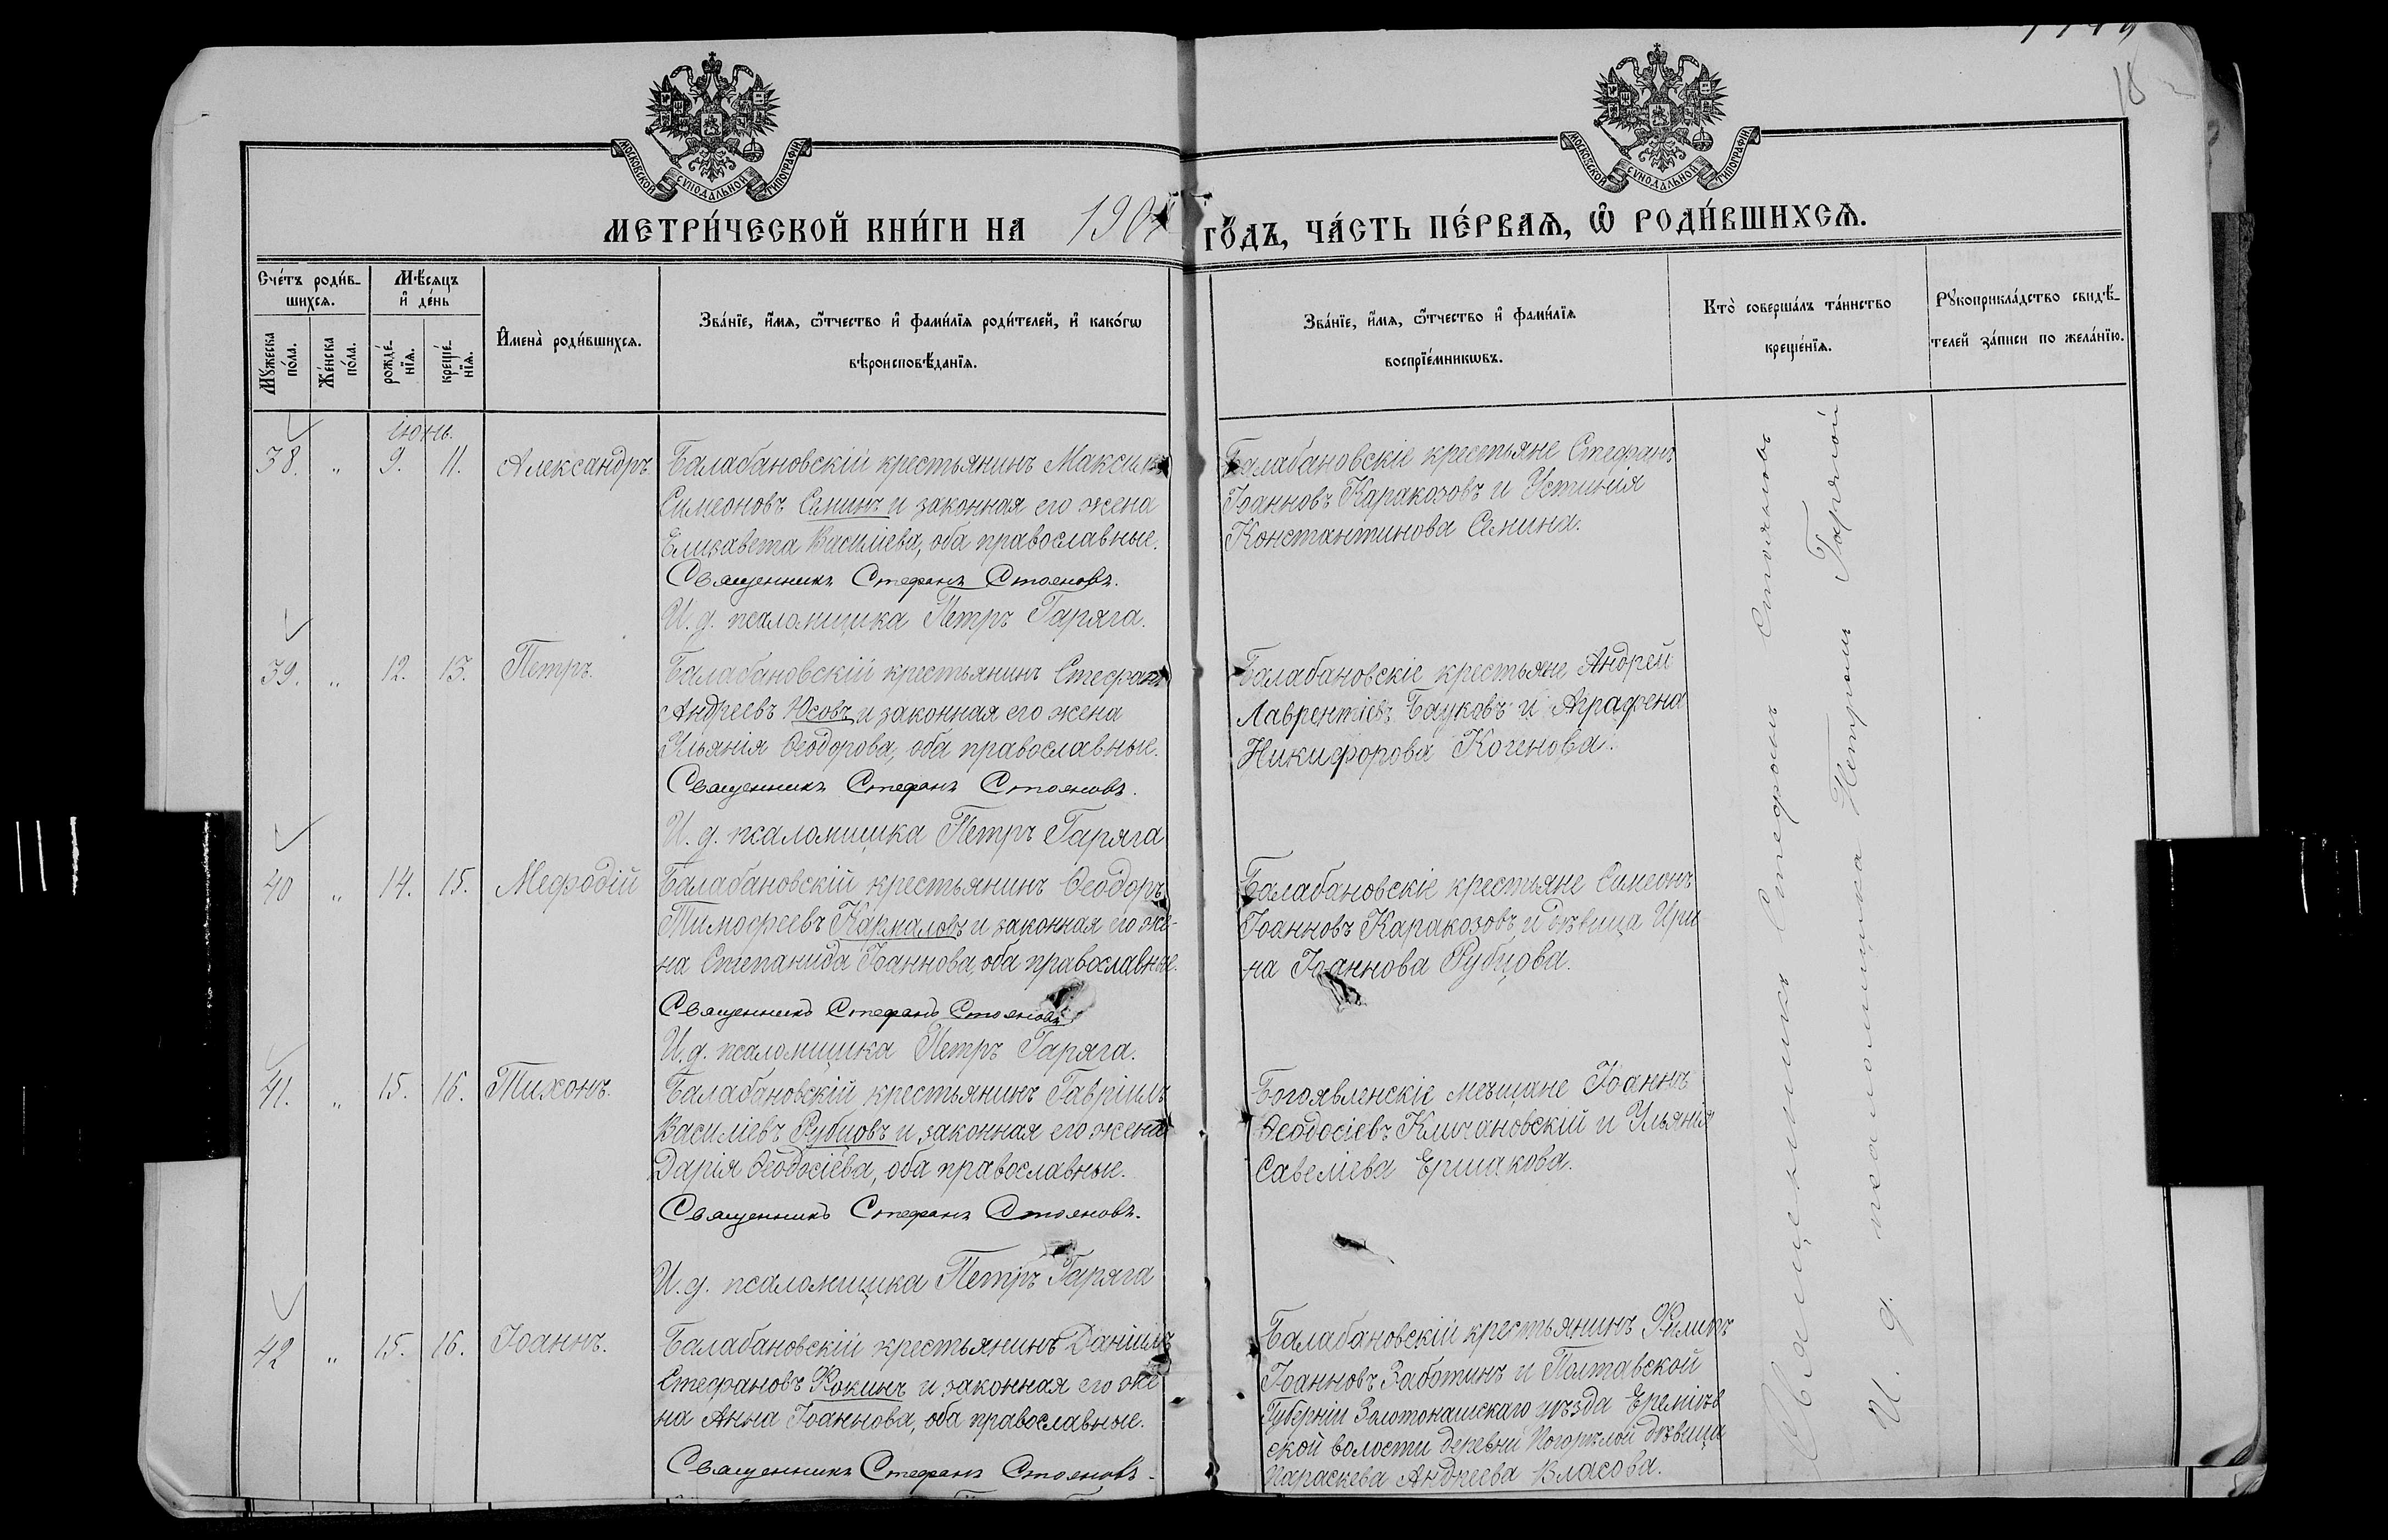 18
МОСКОВСКОЙ СѴНОДАЛЬНОЙ ТИПОГРАФІИ
МОСКОВСКОЙ СѴНОДАЛЬНОЙ ТИПОГРАФІИ
МЕТРИ́ЧЕСКОЙ КНИ́ГИ НА 190 ГО́ДЪ, ЧА́СТЬ ПЕ́РВАѦ, Ѡ РОДИ́ВШИХСѦ.
Сче́тъ роди́в-
шихсѧ.
Мѣ́сѧцъ
и҆ де́нь
Мꙋ́жеска по́ла.
Же́нска по́ла.
рожде́-
нїѧ.
креще́-
нїѧ.
И҆мена̀ роди́вшихсѧ.
Зва́нїе, и҆́мѧ, ѻ҆́тчество и҆ фами́лїѧ роди́телей, и҆ како́гѡ
вѣроисповѣ́данїѧ.
Зва́нїе, и҆́мѧ, ѻ҆́тчество и҆ фами́лїѧ
воспрїе́мникѡвъ.
Кто̀ соверша́лъ та́инство
креще́нїѧ.
Рꙋкоприкла́дство свидѣ́-
телей за́писи по жела́нїю.
Іюнь.
38. " 9. 11. Александръ. Балабановскій крестьянинъ Максимъ
Симеоновъ Семинъ и законная его жена
Елизавета Василіева, оба православные.
Священникъ Стефанъ Стояновъ.
И. д. псаломщика Петръ Гаряга.
Балабановскіе крестьяне Стефанъ
Іоанновъ Каракозовъ и Устинія
Константинова Семина.
39. " 12. 13. Петръ. Балабановскій крестьянинъ Стефанъ
Андреевъ Юсовъ и законная его жена
Ульянія Ѳеодорова, оба православные.
Священникъ Стефанъ Стояновъ.
И. д. псаломщика Петръ Гаряга
Балабановскіе крестьяне Андрей
Лаврентіевъ Бауковъ и Аграфена
Никифорова Коченова.
40 " 14. 15. Мефодій Балабановскій крестьянинъ Ѳеодоръ
Тимофеевъ Кармаловъ и законная его же-
на Степанида Іоаннова, оба православные.
Священникъ Стефанъ Стояновъ
И. д. псаломщика Петръ Гаряга.
Балабановскіе крестьяне Симеонъ
Іоанновъ Каракозовъ и дѣвица Ири
на Іоаннова Рубцова.
41. " 15. 16. Тихонъ. Балабановскій крестьянинъ Гавріилъ
Василіевъ Рубцовъ и законная его жена
Дарія Ѳеодосіева, оба православные.
Священникъ Стефанъ Стояновъ.
И. д. псаломщика Петръ Гаряга
Богоявленскіе мещане Іоаннъ
Ѳеодосіевъ Кличановскій и Ульянія
Савеліева Ершакова.
42 " 15. 16. Іоаннъ. Балабановскій крестьянинъ Даніилъ
Стефановъ Фокинъ и законная его же
на Анна Іоаннова, оба православные.
Священникъ Стефанъ Стояновъ.
Балабановскій крестьянинъ Филипъ
Іоанновъ Заботинъ и Полтавской
Губерніи Золотонашскаго уѣзда Ереміев
ской волости деревни Погорѣлой дѣвица
Параскева Андреева Власова.
Священникъ Стефанъ Стояновъ
И. д. псаломщика Петромъ Гарягой